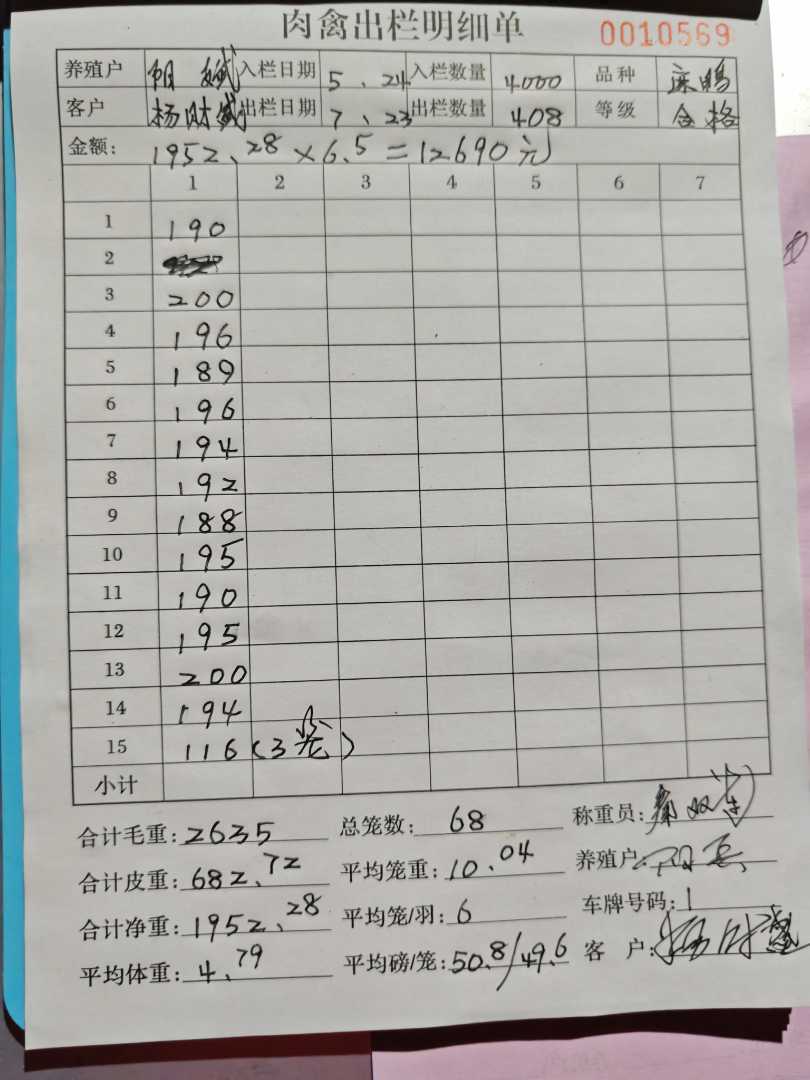 肉禽出栏明细单 0010569
养殖户 入栏日期 5、24 入栏数量 4000 品种
客户 杨财斌 出栏日期 7、23 出栏数量 408 等级 合格
金额: 1952、28×6.5=12690元
1 2 3 4 5 6 7
1 190
2
3 200
4 196
5 189
6 196
7 194
8 192
9 188
10 195
11 190
12 195
13 200
14 194
15 116(3笼)
小计
合计毛重: 2635 总笼数: 68 称重员:
合计皮重: 682.72 平均笼重: 10.04 养殖户:
合计净重: 1952、28 平均笼/羽: 6 车牌号码: 1
平均体重: 4.79 平均磅/笼: 50.8/49.6 客 户: